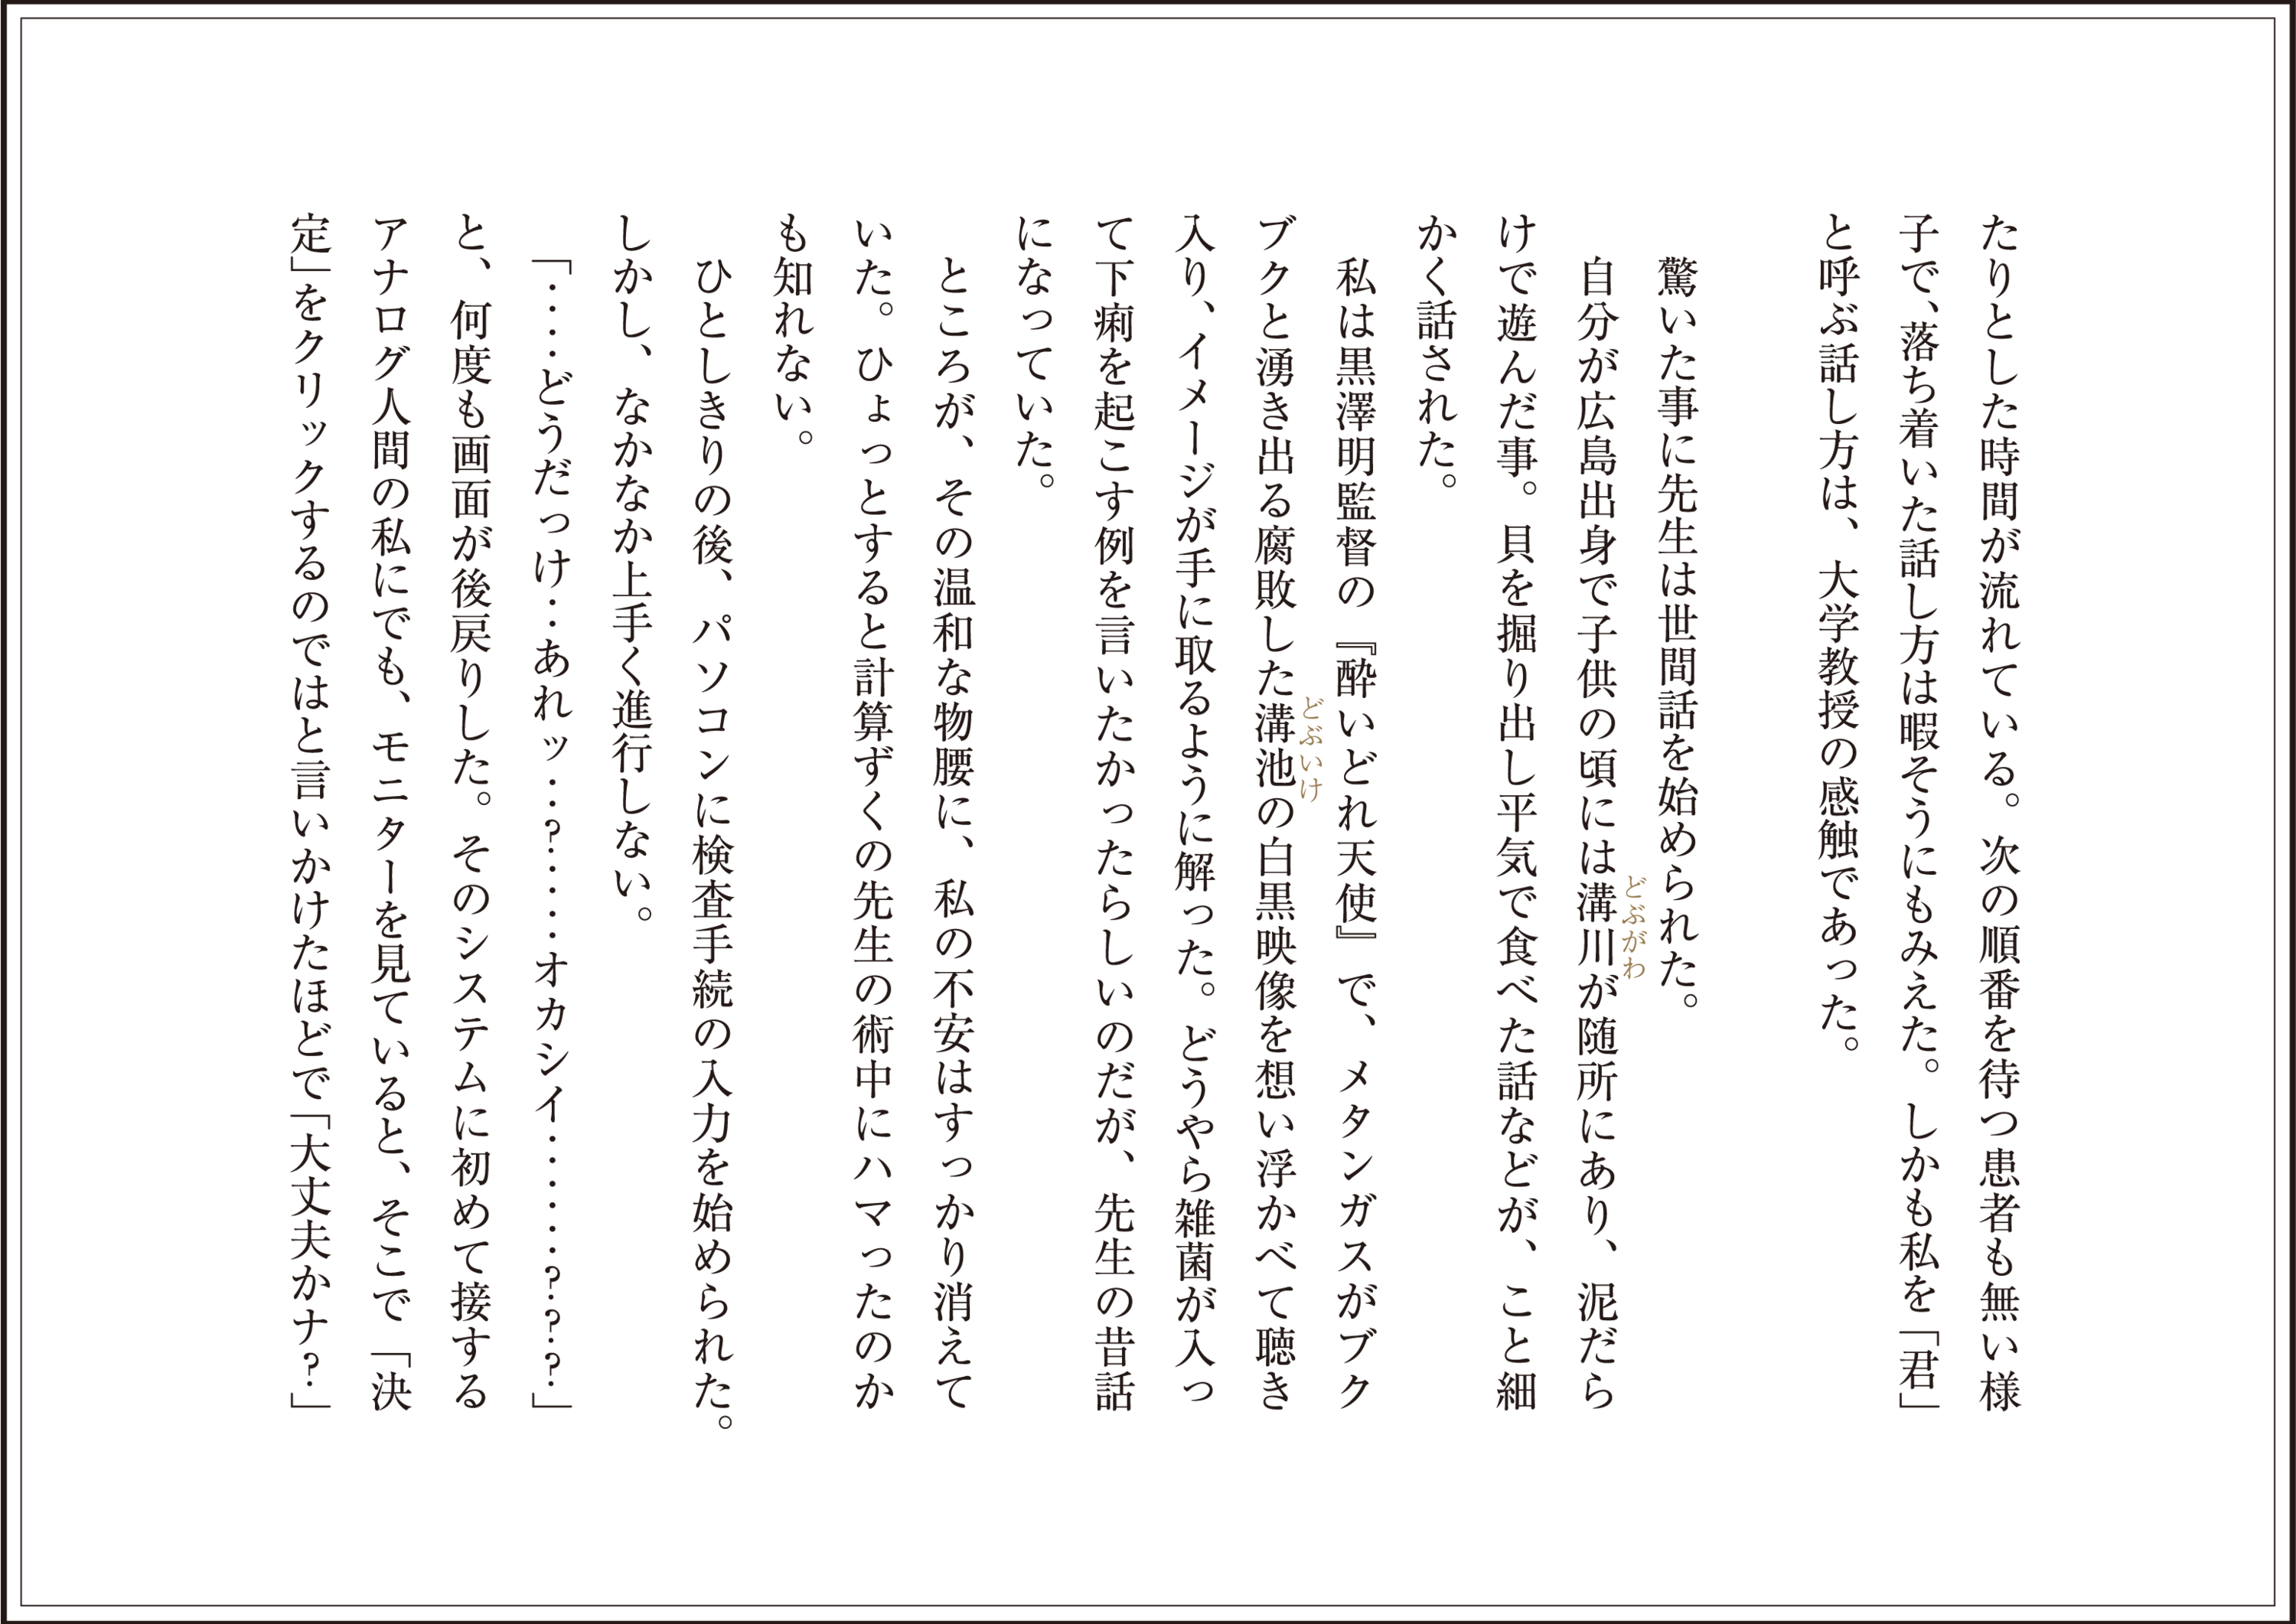 たりとした時間が流れている。次の順番を待つ患者も無い様
子で、落ち着いた話し方は暇そうにもみえた。しかも私を「君」
と呼ぶ話し方は、大学教授の感触であった。
驚いた事に先生は世間話を始められた。
自分が広島出身で子供の頃には溝川が随所にあり、泥だら
どぶがわ
けで遊んだ事。貝を掘り出し平気で食べた話などが、こと細
かく話された。
私は黒澤明監督の『酔いどれ天使』で、メタンガスがブク
ブクと湧き出る腐敗した溝池の白黒映像を想い浮かべて聴き
どぶいけ
入り、イメージが手に取るように解った。どうやら雑菌が入っ
て下痢を起こす例を言いたかったらしいのだが、先生の昔話
になっていた。
ところが、その温和な物腰に、私の不安はすっかり消えて
いた。ひょっとすると計算ずくの先生の術中にハマったのか
も知れない。
ひとしきりの後、パソコンに検査手続の入力を始められた。
しかし、なかなか上手く進行しない。
「‥‥どうだっけ‥あれッ‥‥?‥‥‥オカシイ‥‥‥‥‥?‥?‥?」
と、何度も画面が後戻りした。そのシステムに初めて接する
アナログ人間の私にでも、モニターを見ていると、そこで「決
定」をクリックするのではと言いかけたほどで「大丈夫かナ?」